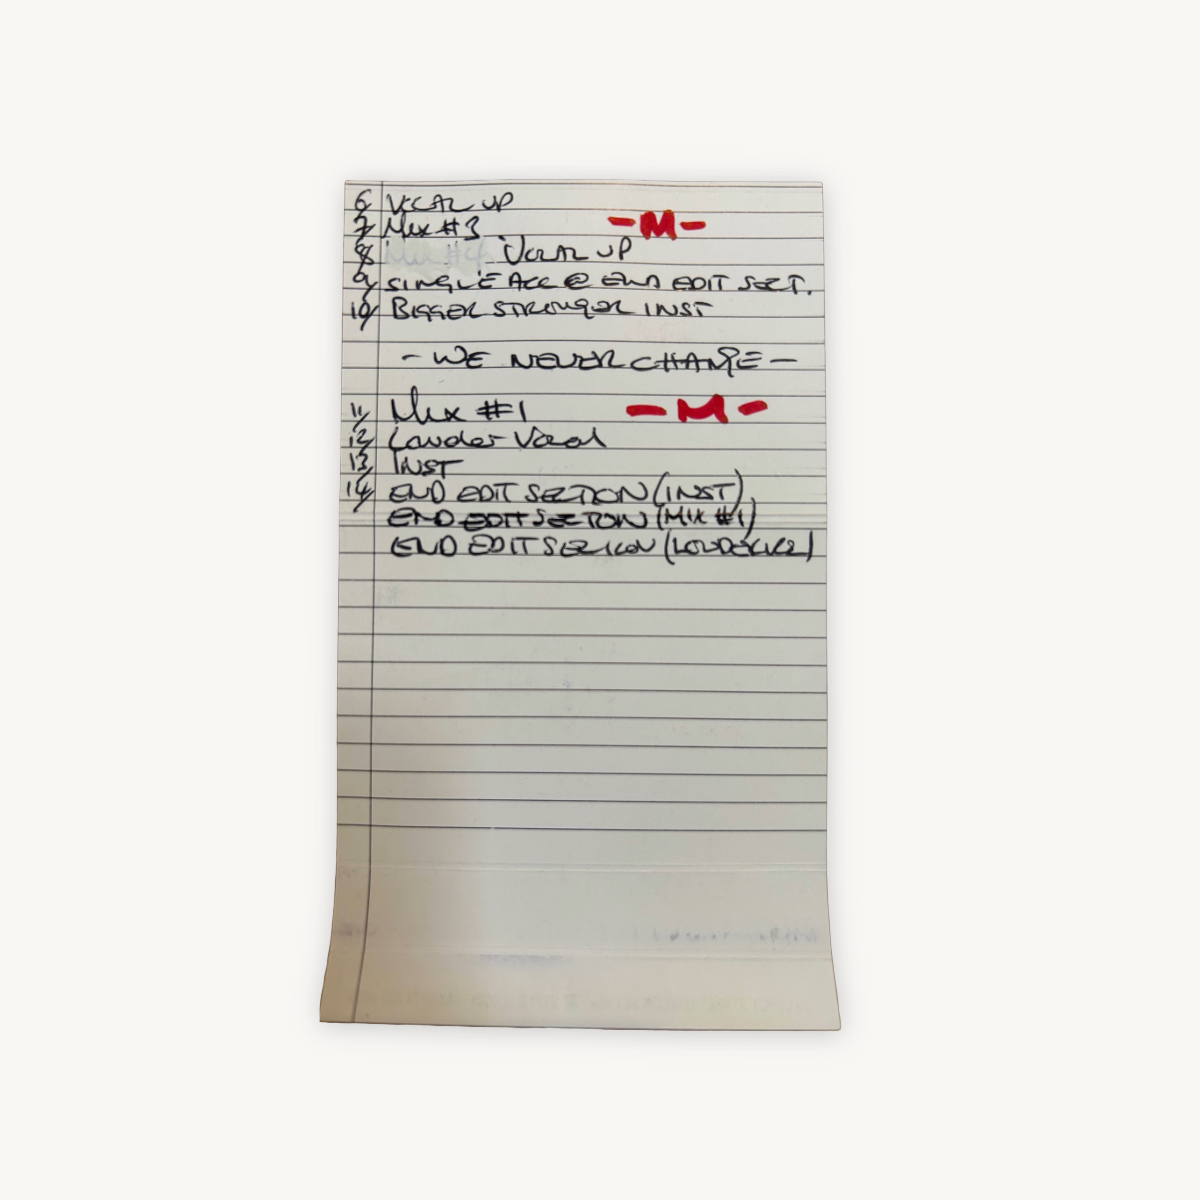 6/ VOCAL UP
7/ Mix #3 -M-
8/ " " VOCAL UP
9/ SINGLE ACC @ END EDIT SECT.
10/ BIGGER STRONGER INST
- WE NEVER CHANGE -
11/ Mix #1 -M-
12/ Louder Vocal
13/ INST
14/ END EDIT SECTION (INST)
END EDIT SECTION (MIX #1)
END EDIT SECTION